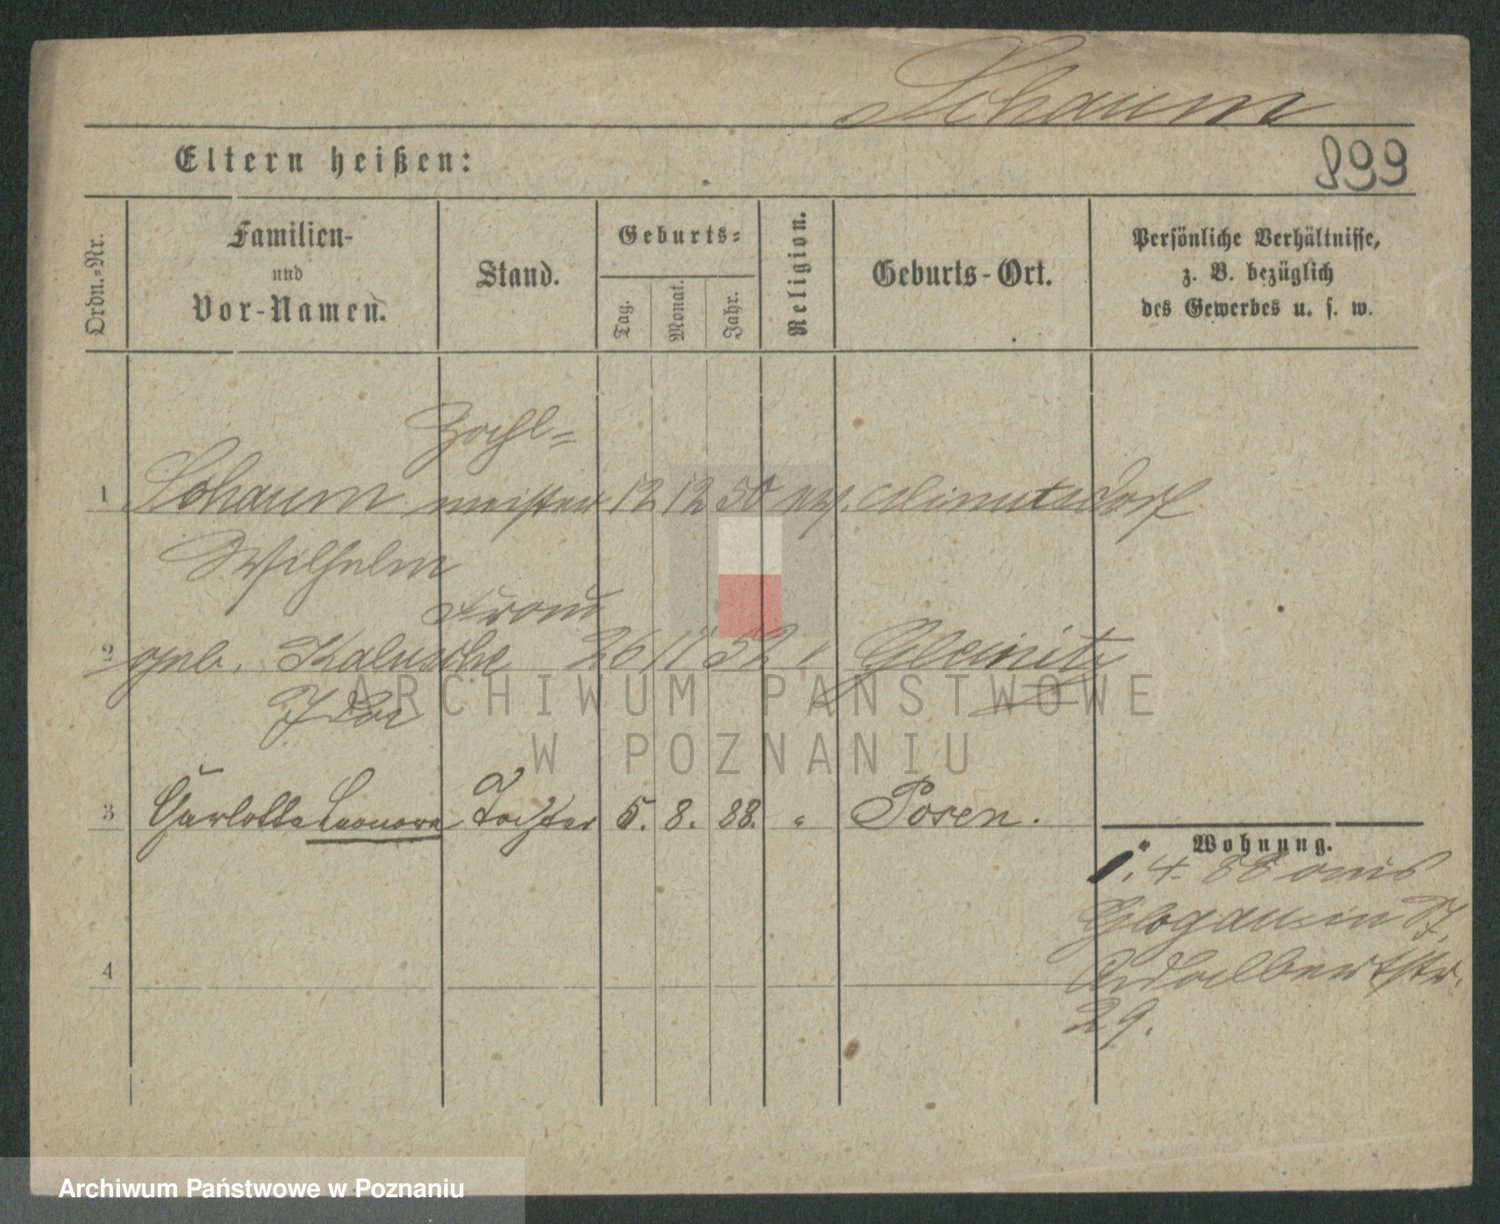 Schaum
Eltern heißen:
899
Ordn.-Nr.
Familien-
und
Vor-Namen.
Stand.
Geburts-
Tag.
Monat.
Jahr.
Religion.
Geburts-Ort.
Persönliche Verhältnisse,
z. B. bezüglich
des Gewerbes u. s. w.
Zahl-
1 Schaum meister 12 12 50
Wilhelm
Frau
2 geb. 26 11 52 Gleinitz
Ida
3 Charlotte Leonore Tochter 5. 8. 88. " Posen.
Wohnung.
1. 4. 88 aus
Glogau in St.
Adalbertstr.
29.
4
ARCHIWUM PAŃSTWOWE
W POZNANIU
Archiwum Państwowe w Poznaniu